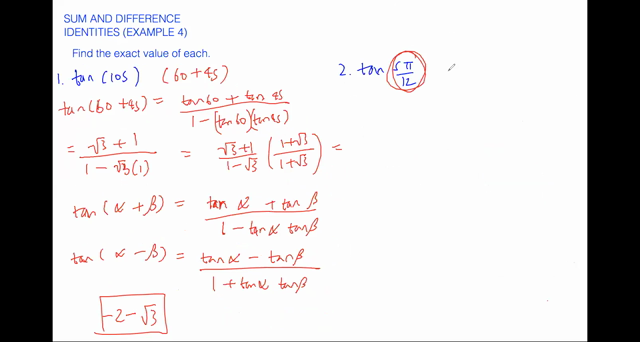 SUM AND DIFFERENCE
IDENTITIES (EXAMPLE 4)
Find the exact value of each.
1. tan(105) (60+45)
tan(60+45) = tan60 + tan45 / 1-(tan60)(tan45)
= √3+1 / 1-√3(1) = √3+1 / 1-√3 (1+√3 / 1+√3) =
tan(α+β) = tan α + tan β / 1 - tanα tanβ
tan(α-β) = tanα - tanβ / 1 + tanα tanβ
-2-√3
2. tan 5π/12